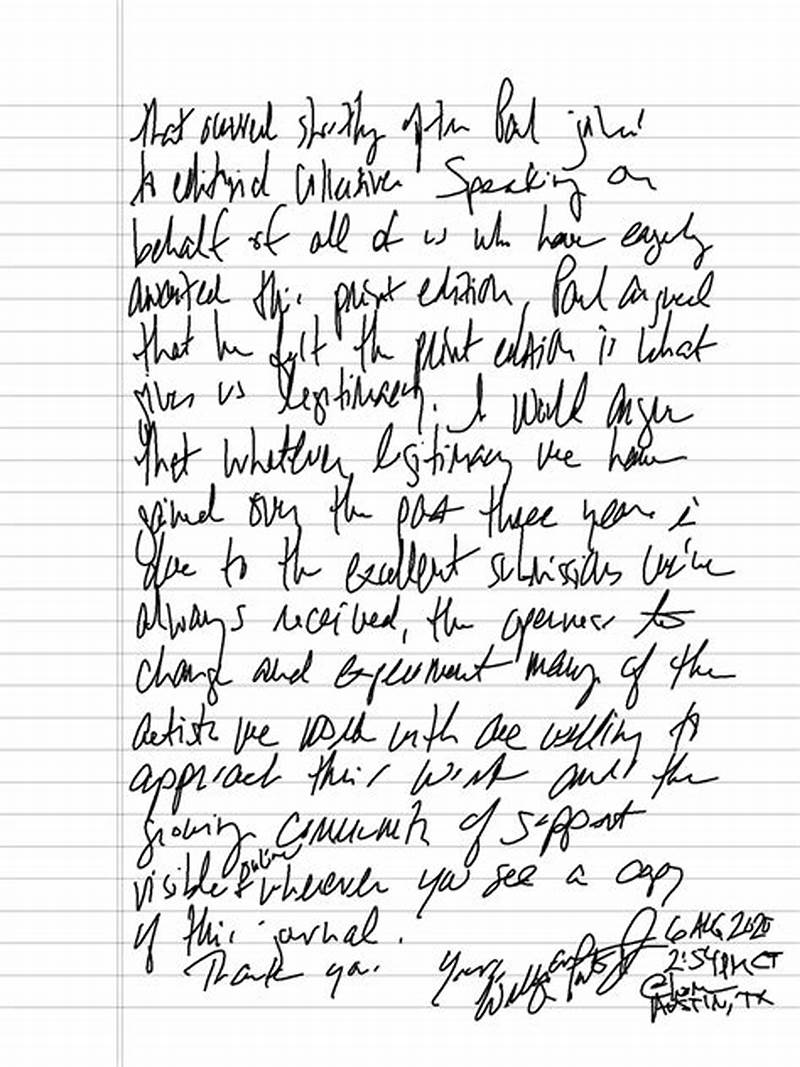 that occurred shortly after Paul joined
the editorial collective. Speaking on
behalf of all of us who have eagerly
awaited this print edition, Paul argued
that he felt the print edition is what
gives us legitimacy. I would argue
that whatever legitimacy we have
gained over the past three years is
due to the excellent submissions we've
always received, the openness to
change and experiment many of the
artists we work with are willing to
approach their work and the
growing community of support
visible online & wherever you see a copy
of this journal.
Thank you.
Yours,
6 AUG 2020
2:54PM CT
@home
AUSTIN, TX